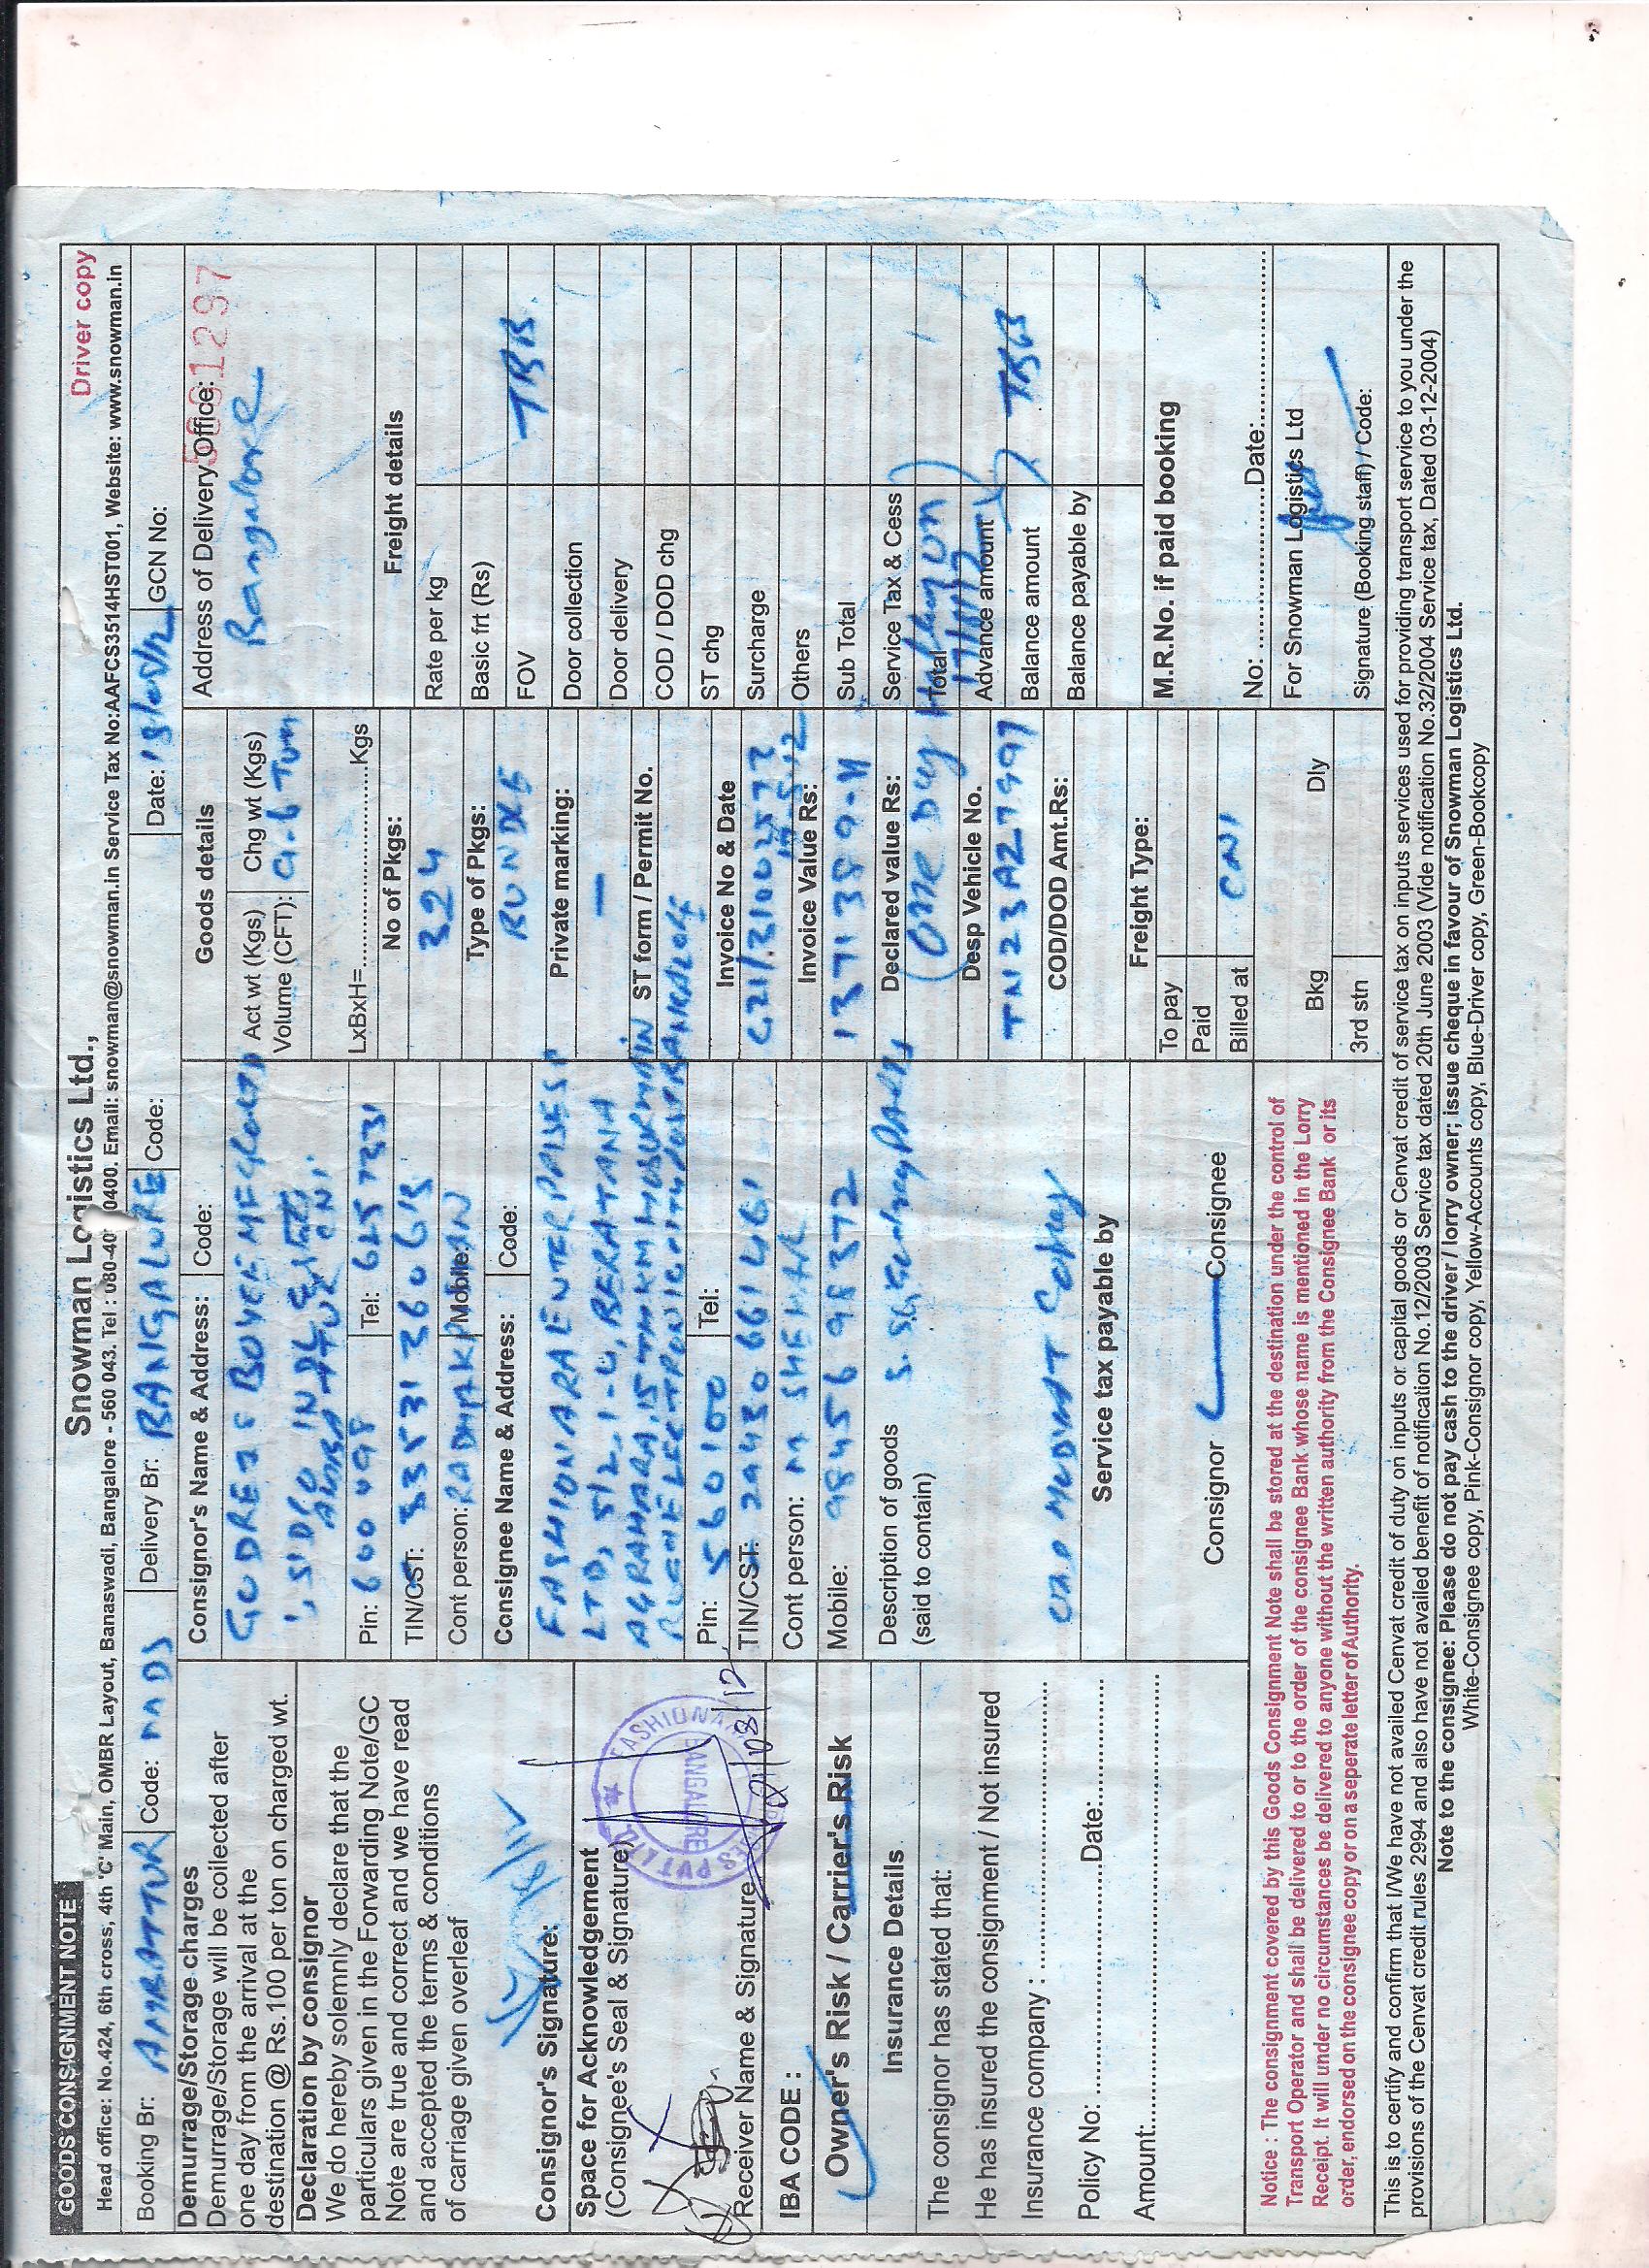 GOODS CONSIGNMENT NOTE
Snowman Logistics Ltd.,
Driver copy
Head office: No.424, 6th cross, 4th 'C' Main, OMBR Layout, Banaswadi, Bangalore - 560 043. Tel : 080-40 0400. Email: snowman@snowman.in Service Tax No:AAFCS3514HST001, Website: www.snowman.in
Booking Br: AMBATTUR Code: MADS Delivery Br: BANGALURE Code: Date: GCN No:
Demurrage/Storage charges
Demurrage/Storage will be collected after
one day from the arrival at the
destination @ Rs.100 per ton on charged wt.
Declaration by consignor
We do hereby solemnly declare that the
particulars given in the Forwarding Note/GC
Note are true and correct and we have read
and accepted the terms & conditions
of carriage given overleaf
Consignor's Signature:
Space for Acknowledgement
(Consignee's Seal & Signature)
BANGALORE
Receiver Name & Signature
21/08/12
IBA CODE :
Owner's Risk / Carrier's Risk
Insurance Details
The consignor has stated that:
He has insured the consignment / Not insured
Insurance company :
Policy No: Date:
Amount:
Consignor's Name & Address: Code:
GODREJ & BOYCE MFG CO LTD
, SIDCO INDL EST
AMBATTUR
Pin: 600098 Tel: 6257331
TIN/CST: 33531360613
Cont person: Mobile:
Consignee Name & Address: Code:
FASHIONARA ENTERPRISES P
LTD, 51/2, 1-4, BERATANA
AGRAHARA, 15TH KM HOSUR MAIN
Pin: 560100 Tel:
TIN/CST: 29430661461
Cont person: M SHEKAR
Mobile: 9845698372
Description of goods
(said to contain)
Service tax payable by
Consignor Consignee
Goods details
Act wt (Kgs) Chg wt (Kgs)
Volume (CFT):
LxBxH= Kgs
No of Pkgs:
324
Type of Pkgs:
Private marking:
—
ST form / Permit No.
Invoice No & Date
Invoice Value Rs:
Declared value Rs:
Desp Vehicle No.
COD/DOD Amt.Rs:
Freight Type:
To pay
Paid
Billed at
Bkg Dly
3rd stn
Address of Delivery Office:
Bangalore
Freight details
Rate per kg
Basic frt (Rs)
FOV TBB
Door collection
Door delivery
COD / DOD chg
ST chg
Surcharge
Others
Sub Total
Service Tax & Cess
Total
Advance amount
Balance amount TBB
Balance payable by
M.R.No. if paid booking
No: Date:
For Snowman Logistics Ltd
Signature (Booking staff) / Code:
Notice : The consignment covered by this Goods Consignment Note shall be stored at the destination under the control of
Transport Operator and shall be delivered to or to the order of the consignee Bank whose name is mentioned in the Lorry
Receipt. It will under no circumstances be delivered to anyone without the written authority from the Consignee Bank or its
order, endorsed on the consignee copy or on a seperate letter of Authority.
This is to certify and confirm that I/We have not availed Cenvat credit of duty on inputs or capital goods or Cenvat credit of service tax on inputs services used for providing transport service to you under the
provisions of the Cenvat credit rules 2994 and also have not availed benefit of notification No.12/2003 Service tax dated 20th June 2003 (Vide notification No.32/2004 Service tax, Dated 03-12-2004)
Note to the consignee: Please do not pay cash to the driver / lorry owner; issue cheque in favour of Snowman Logistics Ltd.
White-Consignee copy, Pink-Consignor copy, Yellow-Accounts copy, Blue-Driver copy, Green-Bookcopy